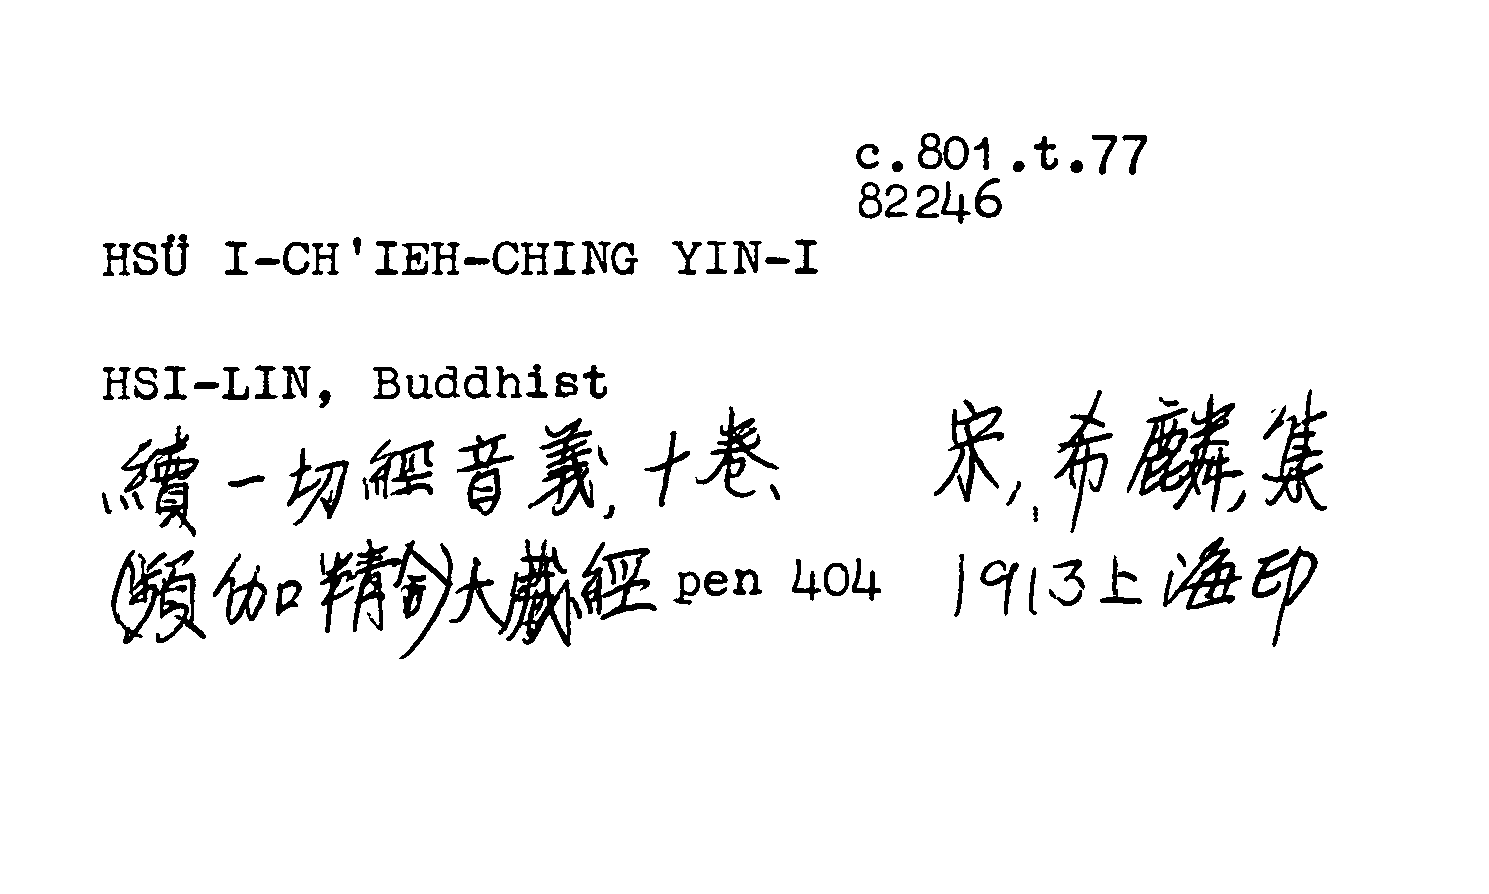 c.801.t.77
82246
HSÜ I-CH'IEH-CHING YIN-I
HSI-LIN, Buddhist
續一切經音義, 十卷、 宋, 希麟, 集
(頻伽精舍)大藏經 pen 404 1913上海印